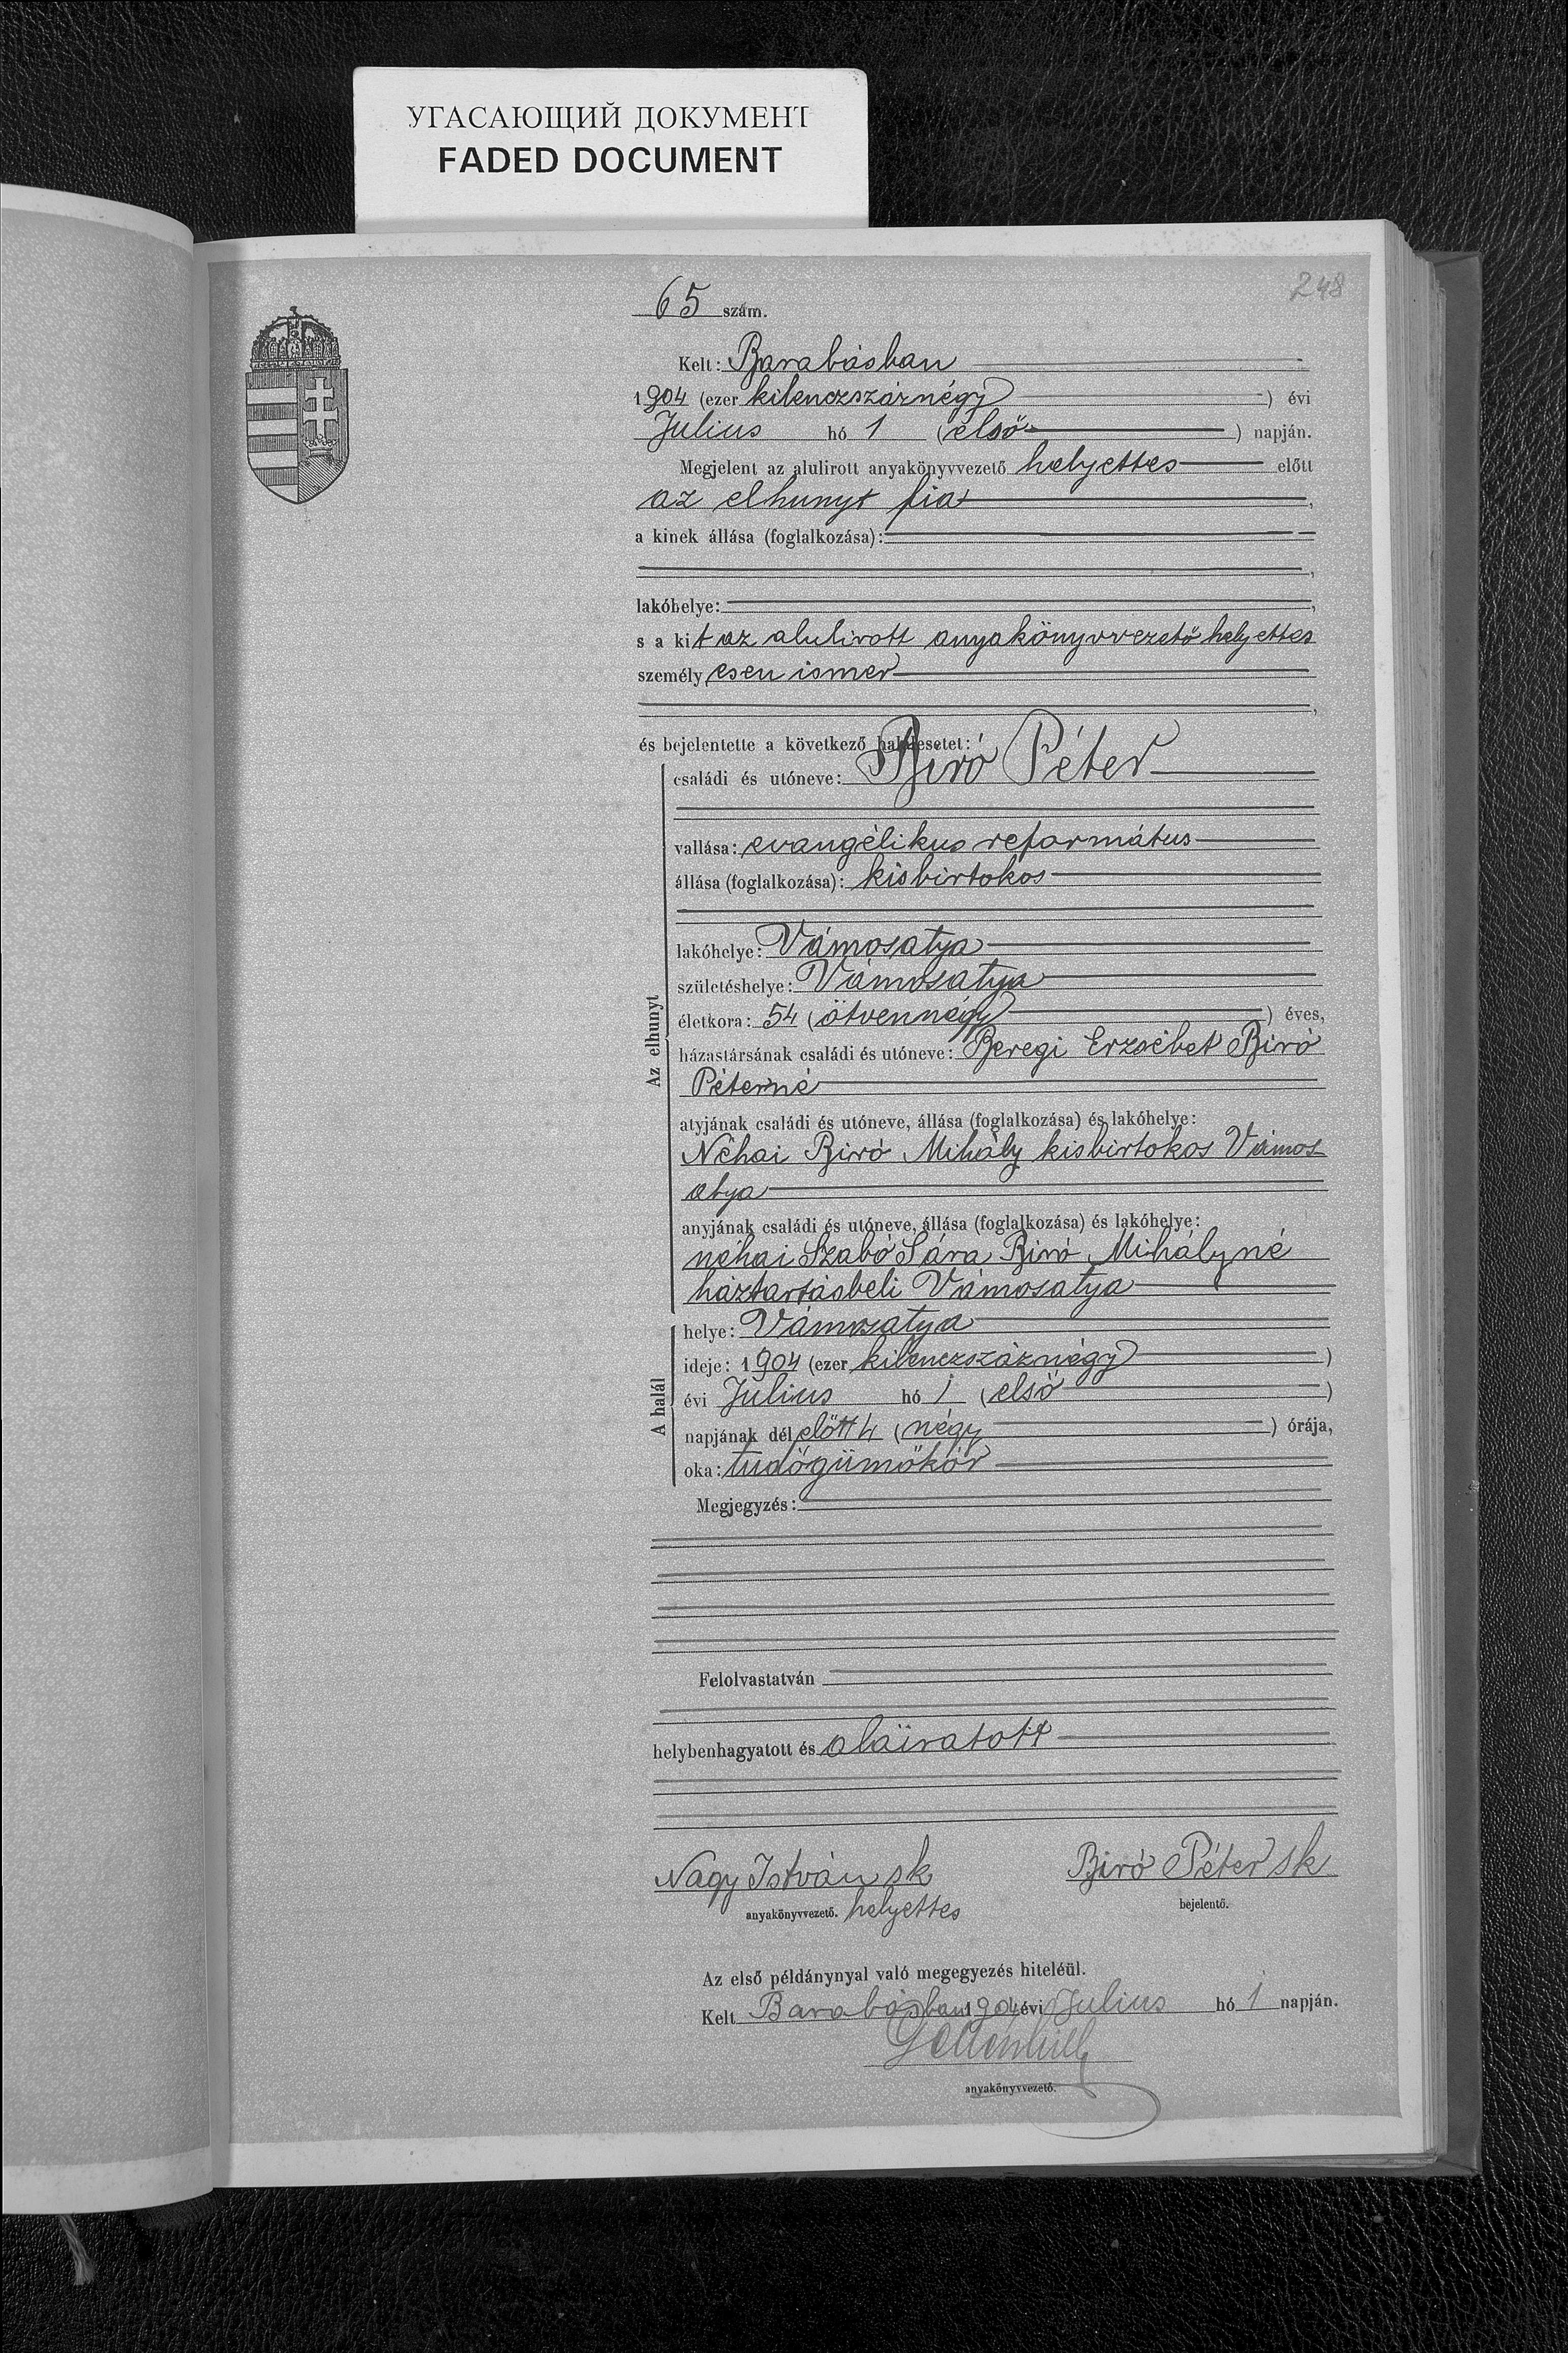 УГАСАЮЩИЙ ДОКУМЕНТ
FADED DOCUMENT
248
65 szám.
Kelt: Barabásban
1904 (ezer kilenczszáznégy) évi
Julius hó 1 (első) napján.
Megjelent az alulirott anyakönyvvezető helyettes előtt
az elhunyt fia,
a kinek állása (foglalkozása):
lakóhelye:
s a kit az alulirott anyakönyvvezető helyettes
személyesen ismer
és bejelentette a következő halálesetet:
Az elhunyt
családi és utóneve: Biró Péter
vallása: evangélikus református
állása (foglalkozása): kisbirtokos
lakóhelye: Vámosatya
születéshelye: Vámosatya
életkora: 54 (ötvennégy) éves,
házastársának családi és utóneve: Beregi Erzsébet Biró
Péterné
atyjának családi és utóneve, állása (foglalkozása) és lakóhelye:
Néhai Biró Mihály kisbirtokos Vámos
atya
anyjának családi és utóneve, állása (foglalkozása) és lakóhelye:
néhai Szabó Sára Biró Mihályné
háztartásbeli Vámosatya
A halál
helye: Vámosatya
ideje: 1904 (ezer kilenczszáznégy)
évi Julius hó 1 (első)
napjának délelőtt 4 (négy) órája,
oka: tüdőgümőkór
Megjegyzés:
Felolvastatván
helybenhagyatott és aláiratott
Nagy István sk Biró Péter sk
anyakönyvvezető. helyettes bejelentő.
Az első példánynyal való megegyezés hiteléül.
Kelt Barabásban 1904 évi Julius hó 1 napján.
anyakönyvvezető.